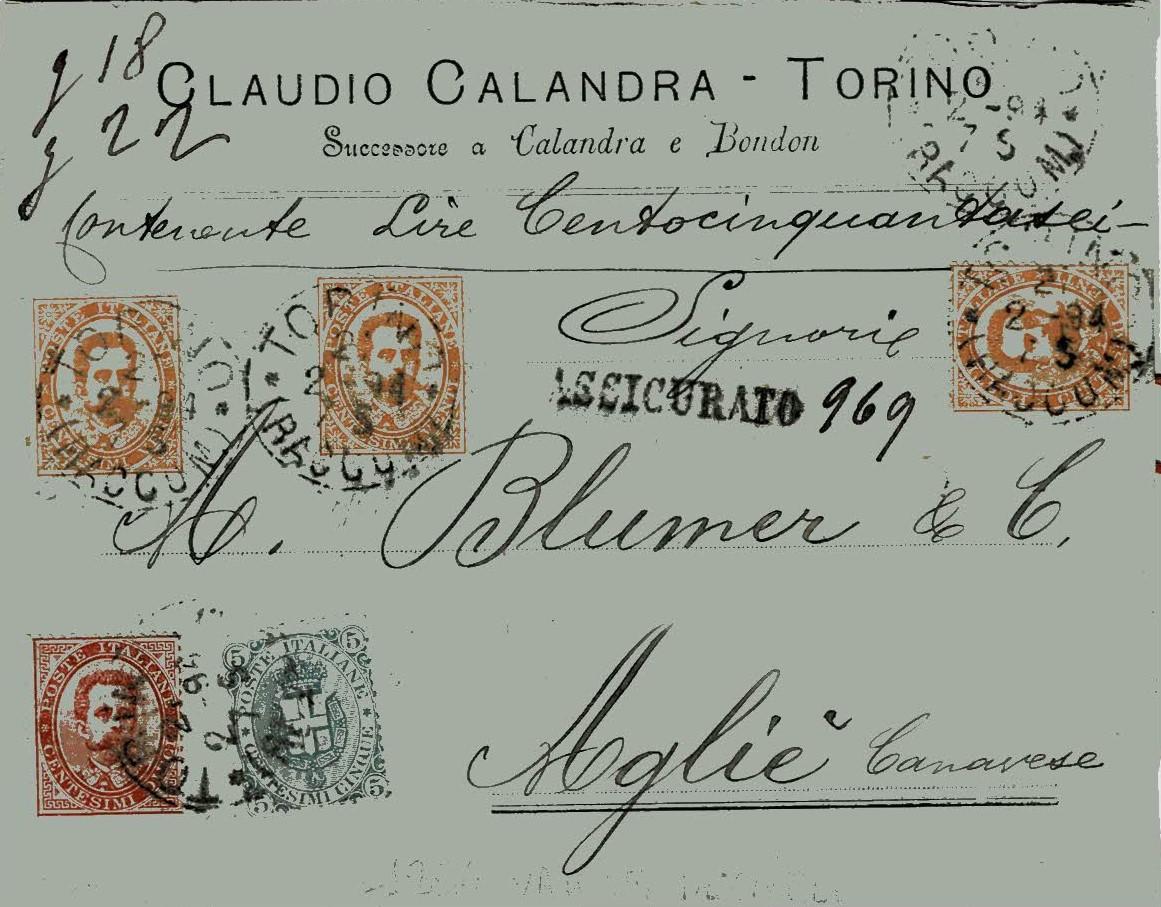 g 18
g 22
CLAUDIO CALANDRA - TORINO
Successore a Calandra e Bondon
Contenente Lire Centocinquantasei-
Signori
ASSICURATO 969
M. Blumer & C.
Agliè Canavese
POSTE ITALIANE
CENTESIMI
POSTE ITALIANE
CENTESIMI
POSTE ITALIANE
CENTESIMI
5 5
POSTE ITALIANE
CENTESIMI CINQUE
5 5
TORINO
2-94
7 S
RACCOM